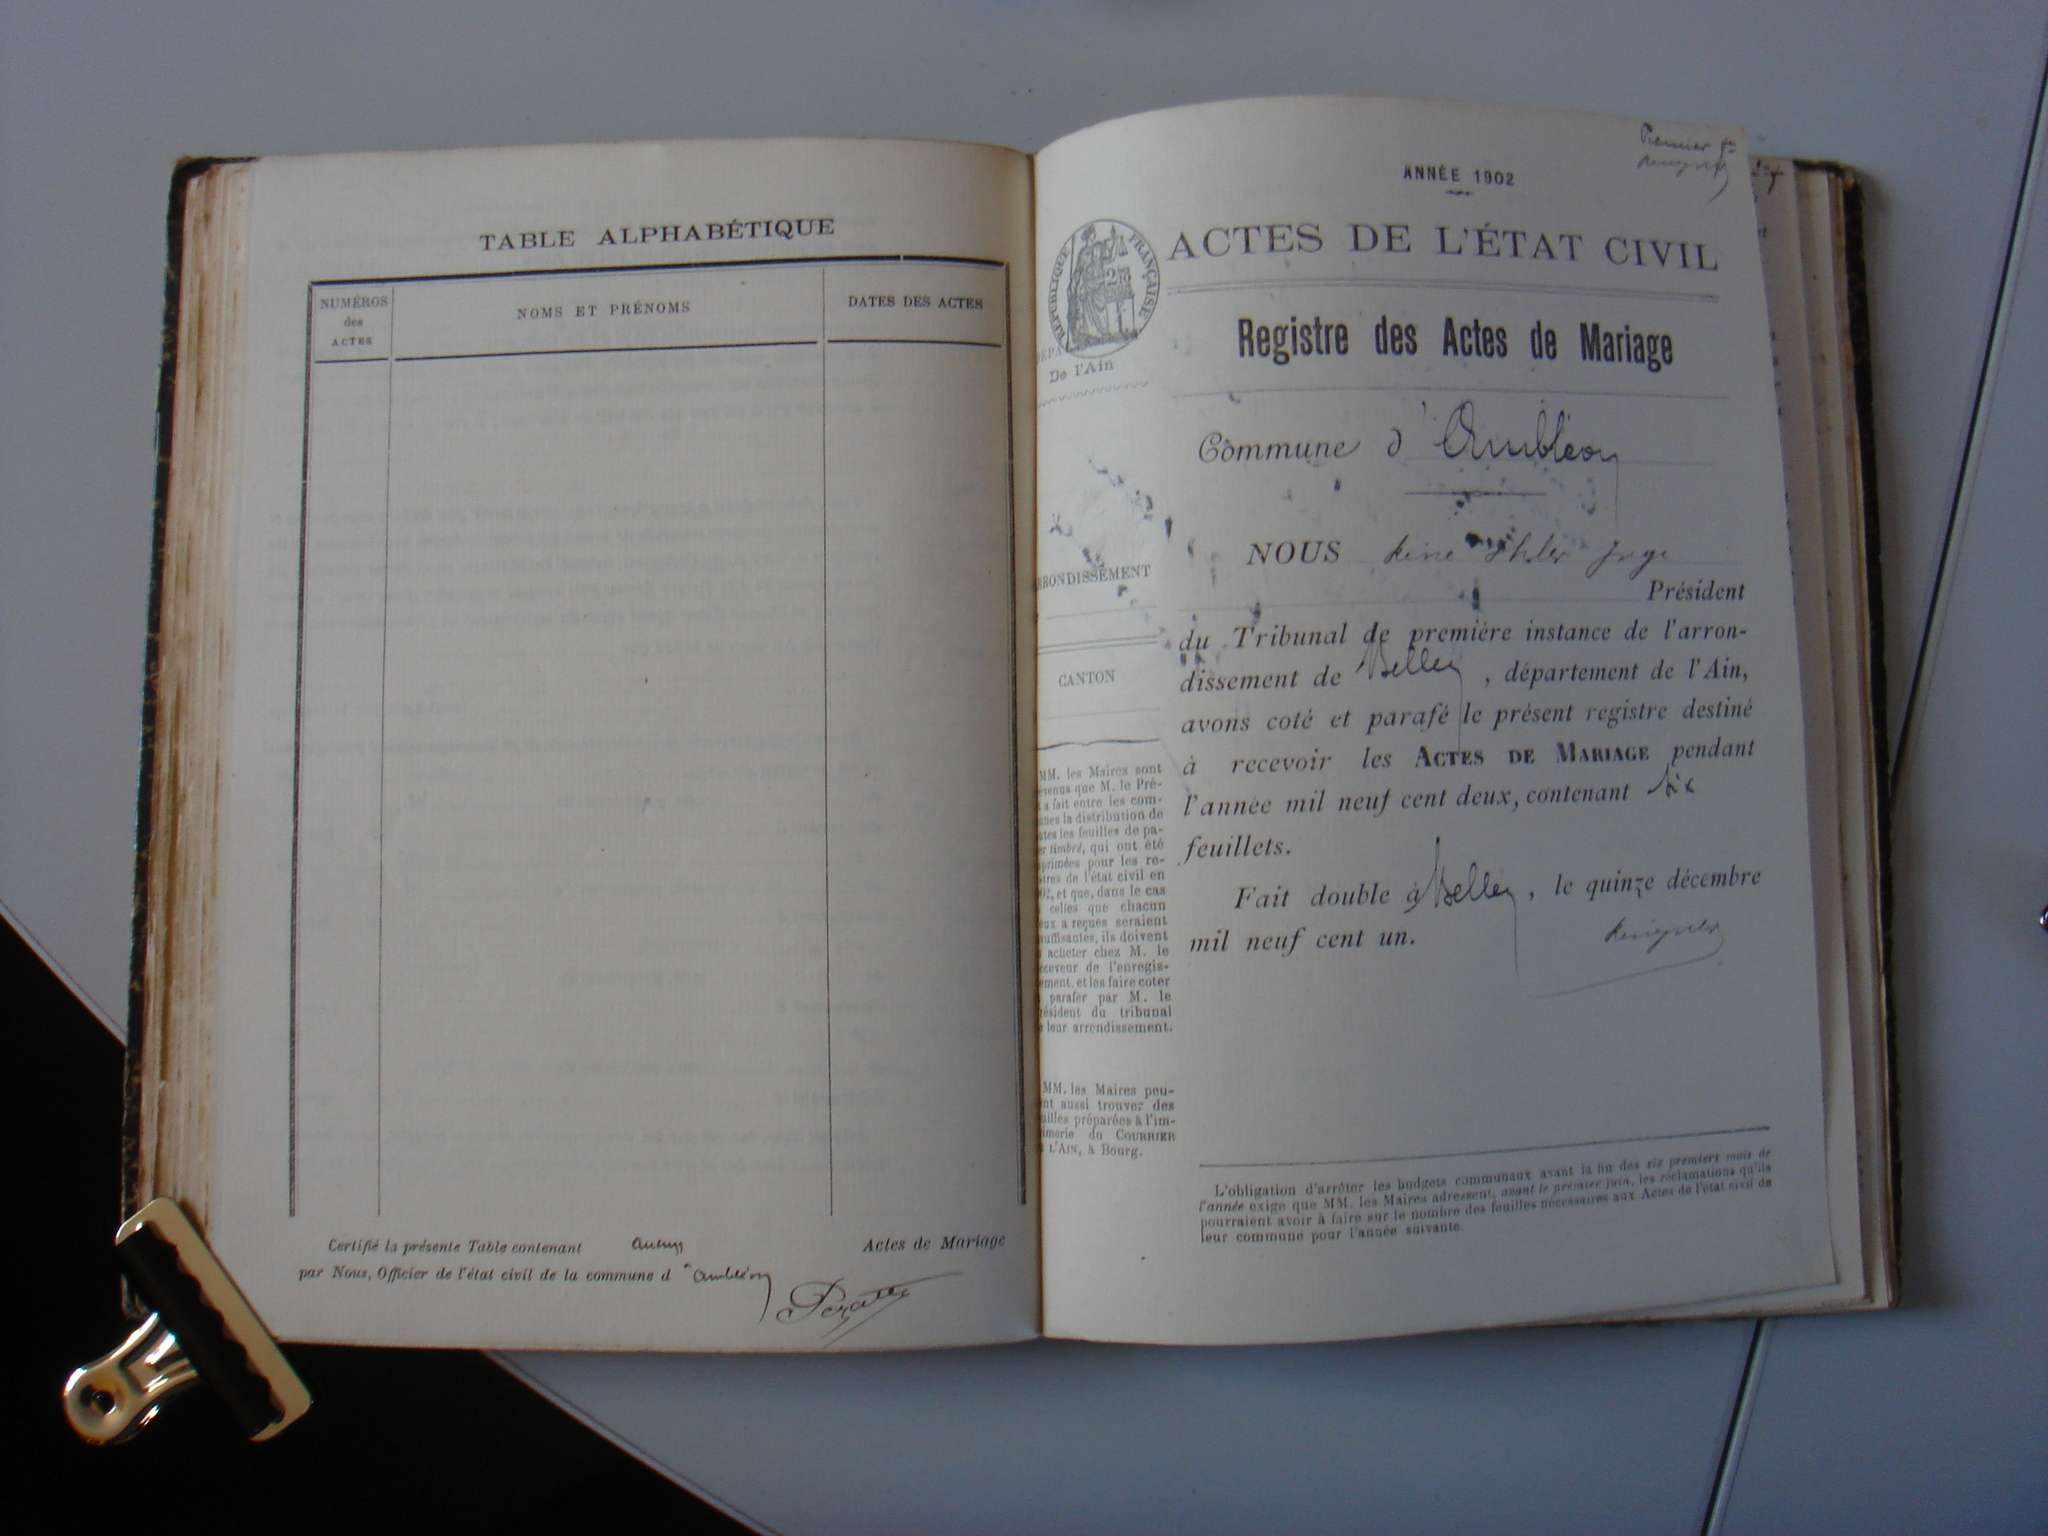 TABLE ALPHABÉTIQUE
NUMÉROS
des
ACTES
NOMS ET PRÉNOMS
DATES DES ACTES
Certifié la présente Table contenant aucun Actes de Mariage
par Nous, Officier de l'état civil de la commune d'Ambléon
Premier fet
ANNÉE 1902
ACTES DE L'ÉTAT CIVIL
RÉPUBLIQUE FRANÇAISE
De l'Ain
Registre des Actes de Mariage
Commune d'Ambléon
NOUS Juge
Président
du Tribunal de première instance de l'arron-
dissement de Belley, département de l'Ain,
avons coté et parafé le présent registre destiné
à recevoir les ACTES DE MARIAGE pendant
l'année mil neuf cent deux, contenant six
feuillets.
Fait double à Belley, le quinze décembre
mil neuf cent un.
RRONDISSEMENT
CANTON
MM. les Maires sont
évenus que M. le Pré-
t a fait entre les com-
nes la distribution de
tes les feuilles de pa-
er timbré, qui ont été
primées pour les re-
stres de l'état civil en
02, et que, dans le cas
celles que chacun
eux a reçues seraient
uffisantes, ils doivent
acheter chez M. le
eceveur de l'enregis-
ement, et les faire coter
parafer par M. le
résident du tribunal
e leur arrondissement.
MM. les Maires peu-
nt aussi trouver des
uilles préparées à l'im-
imerie du COURRIER
L'AIN, à Bourg.
L'obligation d'arrêter les budgets communaux avant la fin des six premiers mois de
l'année exige que MM. les Maires adressent, avant le premier juin, les réclamations qu'ils
pourraient avoir à faire sur le nombre des feuilles nécessaires aux Actes de l'état civil de
leur commune pour l'année suivante.